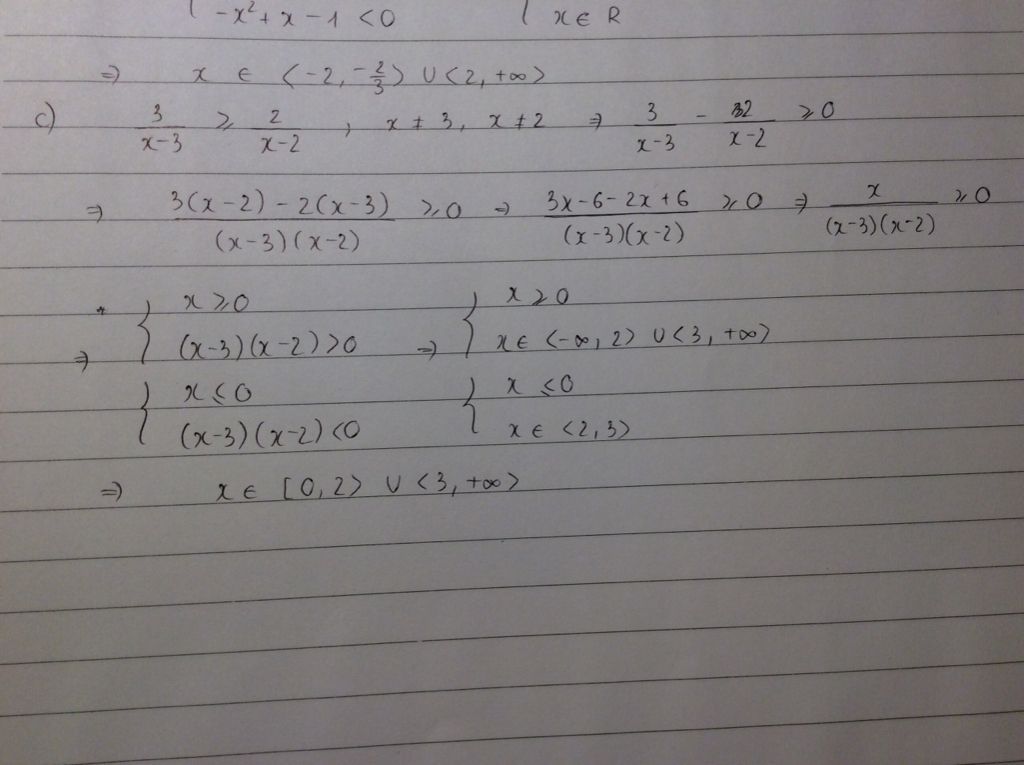 { -x² + x - 1 < 0 { x ∈ R
⇒ x ∈ ⟨-2, -2/3⟩ ∪ ⟨2, +∞⟩
c) 3/(x-3) ≥ 2/(x-2) , x ≠ 3, x ≠ 2 ⇒ 3/(x-3) - 2/(x-2) ≥ 0
⇒ (3(x-2) - 2(x-3))/((x-3)(x-2)) ≥ 0 ⇒ (3x-6-2x+6)/((x-3)(x-2)) ≥ 0 ⇒ x/((x-3)(x-2)) ≥ 0
{ x ≥ 0 { x ≥ 0
⇒ (x-3)(x-2) > 0 ⇒ x ∈ ⟨-∞, 2⟩ ∪ ⟨3, +∞⟩
{ x ≤ 0 { x ≤ 0
(x-3)(x-2) < 0 x ∈ ⟨2, 3⟩
⇒ x ∈ [0, 2⟩ ∪ ⟨3, +∞⟩